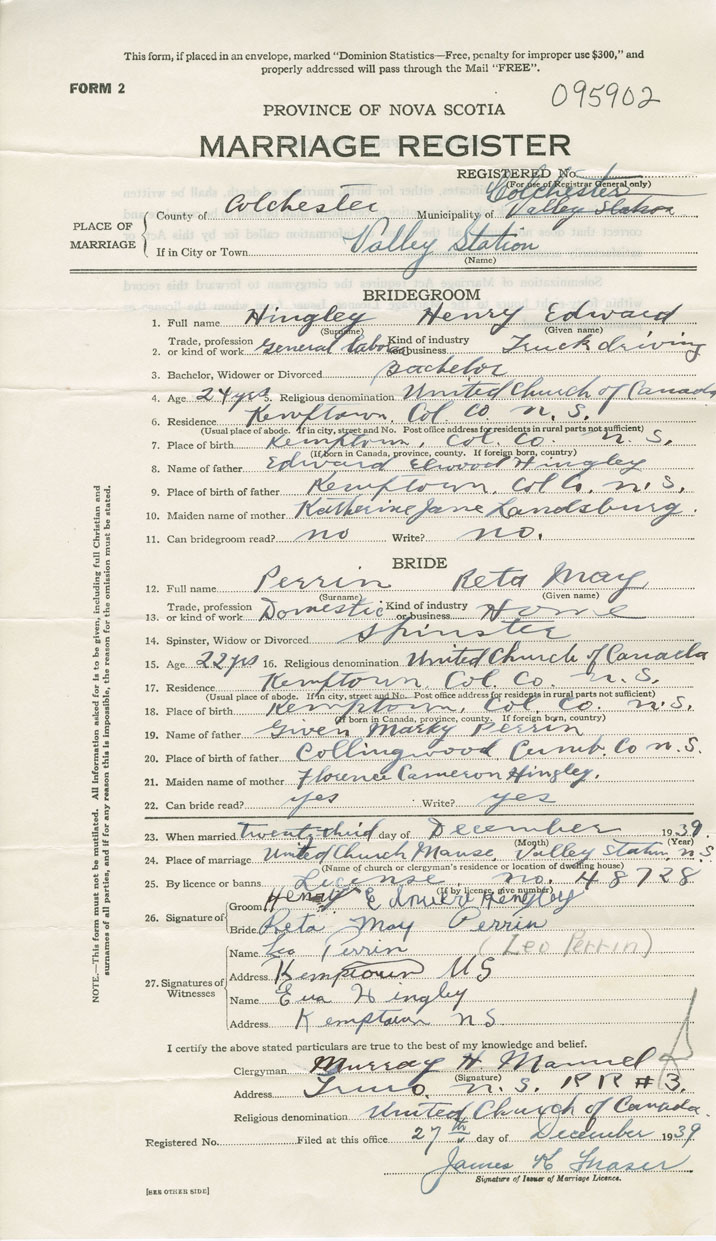 This form, if placed in an envelope, marked "Dominion Statistics—Free, penalty for improper use $300," and
properly addressed will pass through the Mail "FREE".
FORM 2
095902
PROVINCE OF NOVA SCOTIA
MARRIAGE REGISTER
REGISTERED No.
(For use of Registrar General only)
Colchester
PLACE OF MARRIAGE
County of Colchester Municipality of Valley Station
If in City or Town Valley Station
(Name)
BRIDEGROOM
1. Full name Hingley Henry Edward
(Surname) (Given name)
2. Trade, profession or kind of work General labor Kind of industry or business Truck driving
3. Bachelor, Widower or Divorced Bachelor
4. Age 24 yrs 5. Religious denomination United Church of Canada
6. Residence Kemptown, Col. Co. N. S.
(Usual place of abode. If in city, street and No. Post office address for residents in rural parts not sufficient)
7. Place of birth Kemptown, Col. Co. N. S.
(If born in Canada, province, county. If foreign born, country)
8. Name of father Edward Elwood Hingley
9. Place of birth of father Kemptown, Col Co. N. S.
10. Maiden name of mother Katherine Jane Landsburg.
11. Can bridegroom read? no Write? no.
BRIDE
12. Full name Perrin Reta May
(Surname) (Given name)
13. Trade, profession or kind of work Domestic Kind of industry or business Home
14. Spinster, Widow or Divorced Spinster
15. Age 22 yrs 16. Religious denomination United Church of Canada
17. Residence Kemptown, Col. Co. N. S.
(Usual place of abode. If in city, street and No. Post office address for residents in rural parts not sufficient)
18. Place of birth Kemptown, Col. Co. N. S.
(If born in Canada, province, county. If foreign born, country)
19. Name of father Perrin
20. Place of birth of father Collingwood Cumb. Co N. S.
21. Maiden name of mother Florence Cameron Hingley.
22. Can bride read? yes Write? yes
23. When married twenty-third day of December 1939.
(Month) (Year)
24. Place of marriage United Church Manse, Valley Station, N.S.
(Name of church or clergyman's residence or location of dwelling house)
25. By licence or banns License, no. 48728
(If by licence, give number)
26. Signature of
Groom Henry Edward Hingley
Bride Reta May Perrin
27. Signatures of Witnesses
Name Leo Perrin (Leo Perrin)
Address Kemptown NS
Name Eva Hingley
Address Kemptown NS
I certify the above stated particulars are true to the best of my knowledge and belief.
Clergyman Murray H. Manuel
(Signature)
Address Truro. N. S. RR #3.
Religious denomination United Church of Canada.
Registered No. Filed at this office 27th day of December 1939
James K Fraser
Signature of Issuer of Marriage Licence.
[SEE OTHER SIDE]
NOTE.—This form must not be mutilated. All information asked for is to be given, including full Christian and
surnames of all parties, and if for any reason this is impossible, the reason for the omission must be stated.